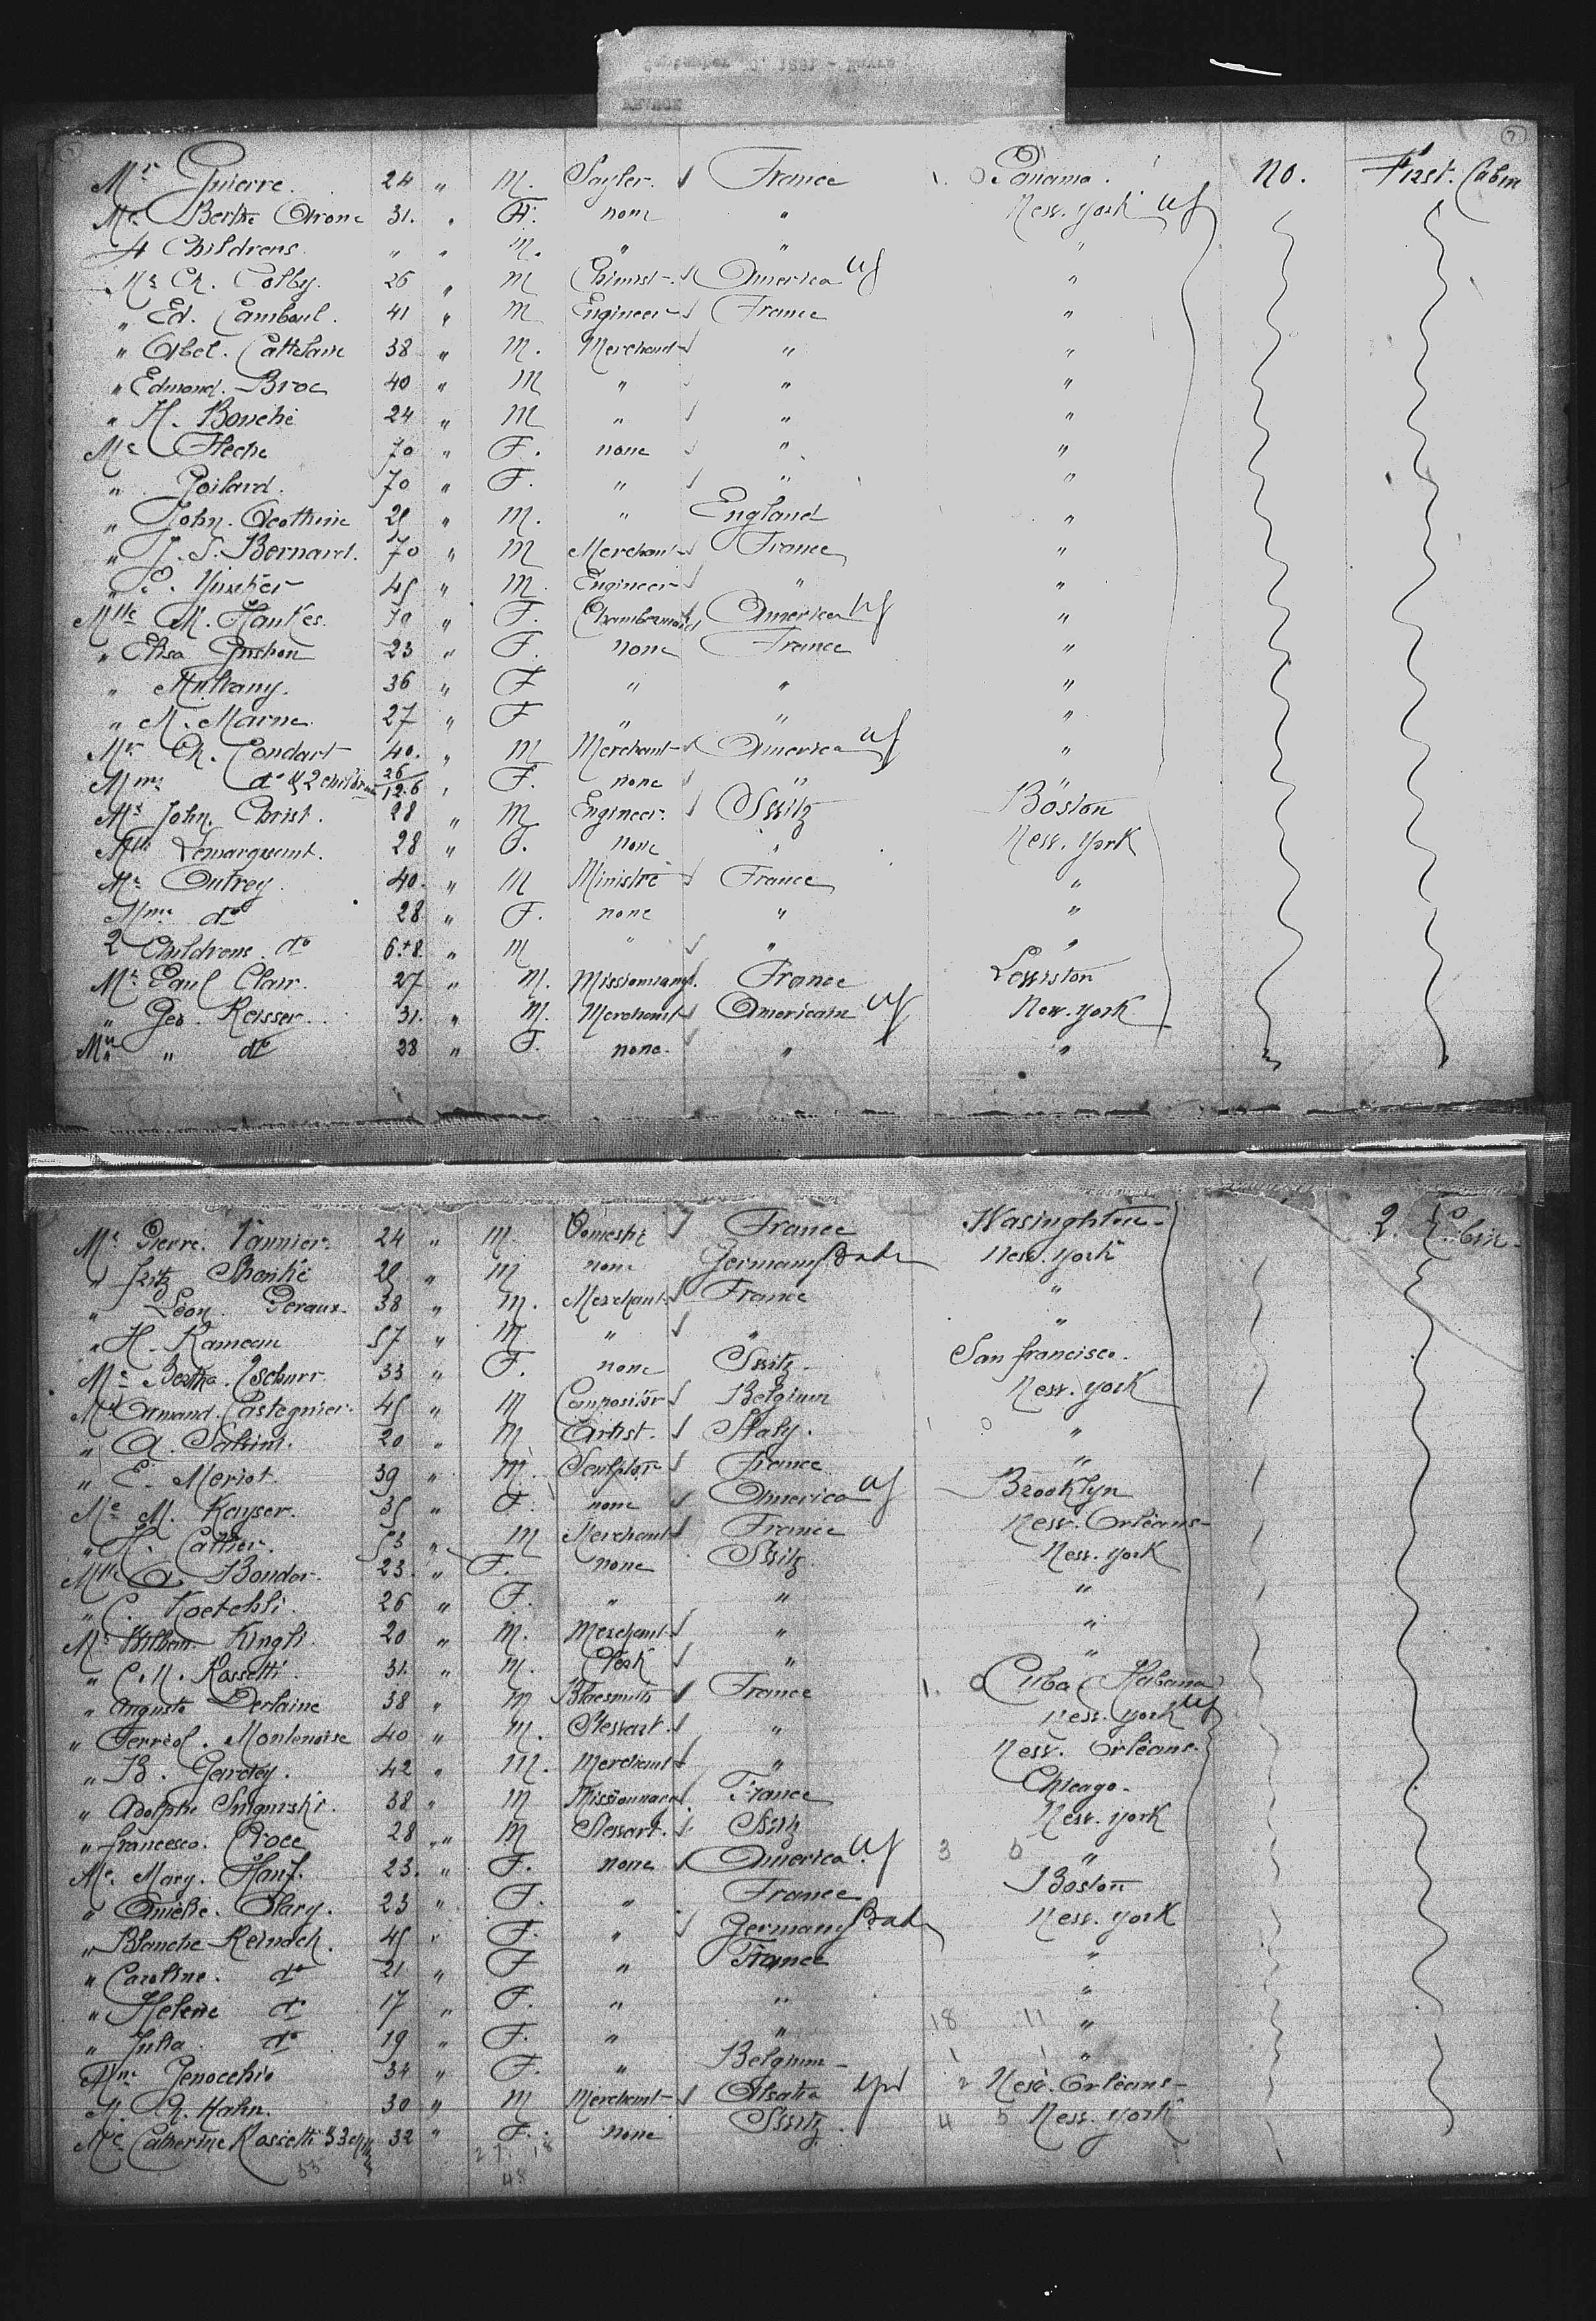 September 1881 - Havre
Mr Guierre. 24 " M. Sayler. France Panama. no. First. Cabin
Me Berthe 31. " F. none " New. york
4 Childrens " " M. " " "
Mr Ch. Colby. 26 " M Chimist America "
" Ed. Camboul. 41 " M Engineer France "
" Abel. Cattelain 38 " M. Merchand " "
" Edmond. Broc 40 " M " " "
" H. Bouché 24 " M " " "
Me Fleche 70 " F. none " "
" Goilard. 70 " F. " " "
" John. " M. " England "
" J. S. Bernard. 70 " M Merchant France "
" 45 " M. Engineer " "
Mlle M. Haukes. 70 " F. Chambermaid America "
" Elisa 23 " F. none France "
" 36 " F " " "
" M. Marne 27 " F " " "
Mr Ch. Condart 40. " M Merchant America "
Mme do & 2 children 26 12.6 " F. none " "
Mr John. Christ. 28 " M Engineer. Switz Boston
Mlle Lemarquant. 28 " F. none " New. york
Mr Outrey. 40. " M Ministre France "
Mme do 28 " F. none " "
2 Childrens do 6.+8 " M " " "
Mr Paul Clair. 27 " M. Missionnary. France Lewiston
" Geo. Reisser. 31. " M. Merchant American New. york
Me " do 28 " F. none. " "
Mr Pierre. Vannier. 24 " M. Domestic France Wasinghton 2. Cabin
" Fritz 25 " M none Germany Bade New. york
" Léon. Geraux. 38 " M. Merchant France "
" H. Rameau 57 " M " " "
Me Bertha. Tschurr 33 " F. none Switz. San francisco.
Mr Armand. Castegnier. 45 " M Compositor Belgium New. york
" A. Salvini. 20 " M Artist. Italy. "
" E. Meriot. 39 " M. Sculptor France "
Me M. Kayser. 35 " F. none America Brooklyn
" H. Cathier. 53 " M Merchant France New. Orléans
Mlle A. Bondor. 23. " F. none Switz. New. york
" C. Koetchli. 26 " F. " " "
Mr William Kingli. 20 " M. Merchant " "
" C. M. Rossetti. 31. " M. Clerk " "
" Auguste Derlaine 38 " M Blacsmith France Cuba (Habana)
" Ferréol. Montenoise 40 " M. Stewart. " New. york
" B. Gardey. 42 " M. Merchant " New. Orléans.
" Adolphe 38 " M Missionnary France Chicago.
" francesco. Croce 28 " M Stewart. Switz New. york
Me. Mary. Hanf. 23. " F. none America. 3 0 "
" Amélie. Clary. 23 " F. " France Boston
" Blanche Reinach. 45 " F. " Germany Bade New. york
" Caroline. do 21 " F " France "
" Helene do 17 " F. " " "
" Julia. do 19 " F. " " 18 11 "
Mme Genocchio 34 " F. " Belgium 1 1 "
M. R. Hahn. 30 " M Merchant Alsatia 2 New. Orléans
Me Catherine Rossetti & 3 32 " F. none Switz. 4 5 New. york
55 27. 18
48